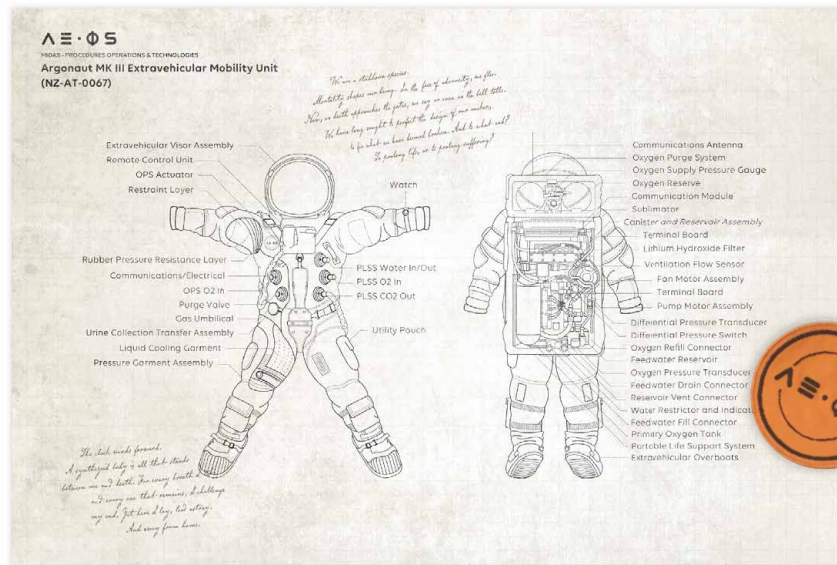 ΛΞ·ΦS
MIDAS - PROCEDURES OPERATIONS & TECHNOLOGIES
Argonaut MK III Extravehicular Mobility Unit
(NZ-AT-0067)
We are a stubborn species.
Mortality shapes our being. In the face of adversity, we
Now, as death approaches the gates, we say no more as the bell tolls.
We have long sought to perfect the design of our makers,
to fix what we have deemed broken. And to what end?
To prolong life, or to prolong suffering?
Extravehicular Visor Assembly
Remote Control Unit
OPS Actuator
Restraint Layer
Watch
Rubber Pressure Resistance Layer
Communications/Electrical
OPS O2 In
Purge Valve
Gas Umbilical
Urine Collection Transfer Assembly
Liquid Cooling Garment
Pressure Garment Assembly
PLSS Water In/Out
PLSS O2 In
PLSS CO2 Out
Utility Pouch
Communications Antenna
Oxygen Purge System
Oxygen Supply Pressure Gauge
Oxygen Reserve
Communication Module
Sublimator
Canister and Reservoir Assembly
Terminal Board
Lithium Hydroxide Filter
Ventilation Flow Sensor
Fan Motor Assembly
Terminal Board
Pump Motor Assembly
Differential Pressure Transducer
Differential Pressure Switch
Oxygen Refill Connector
Feedwater Reservoir
Oxygen Pressure Transducer
Feedwater Drain Connector
Reservoir Vent Connector
Water Restrictor and Indicat
Feedwater Fill Connector
Primary Oxygen Tank
Portable Life Support System
Extravehicular Overboots
ΛΞ·
The clock winds forward.
A synthesized body is all that stands
between me and death. For every breath
and every one that remains, I challenge
my end. Yet here I lay, led astray.
And away from home.